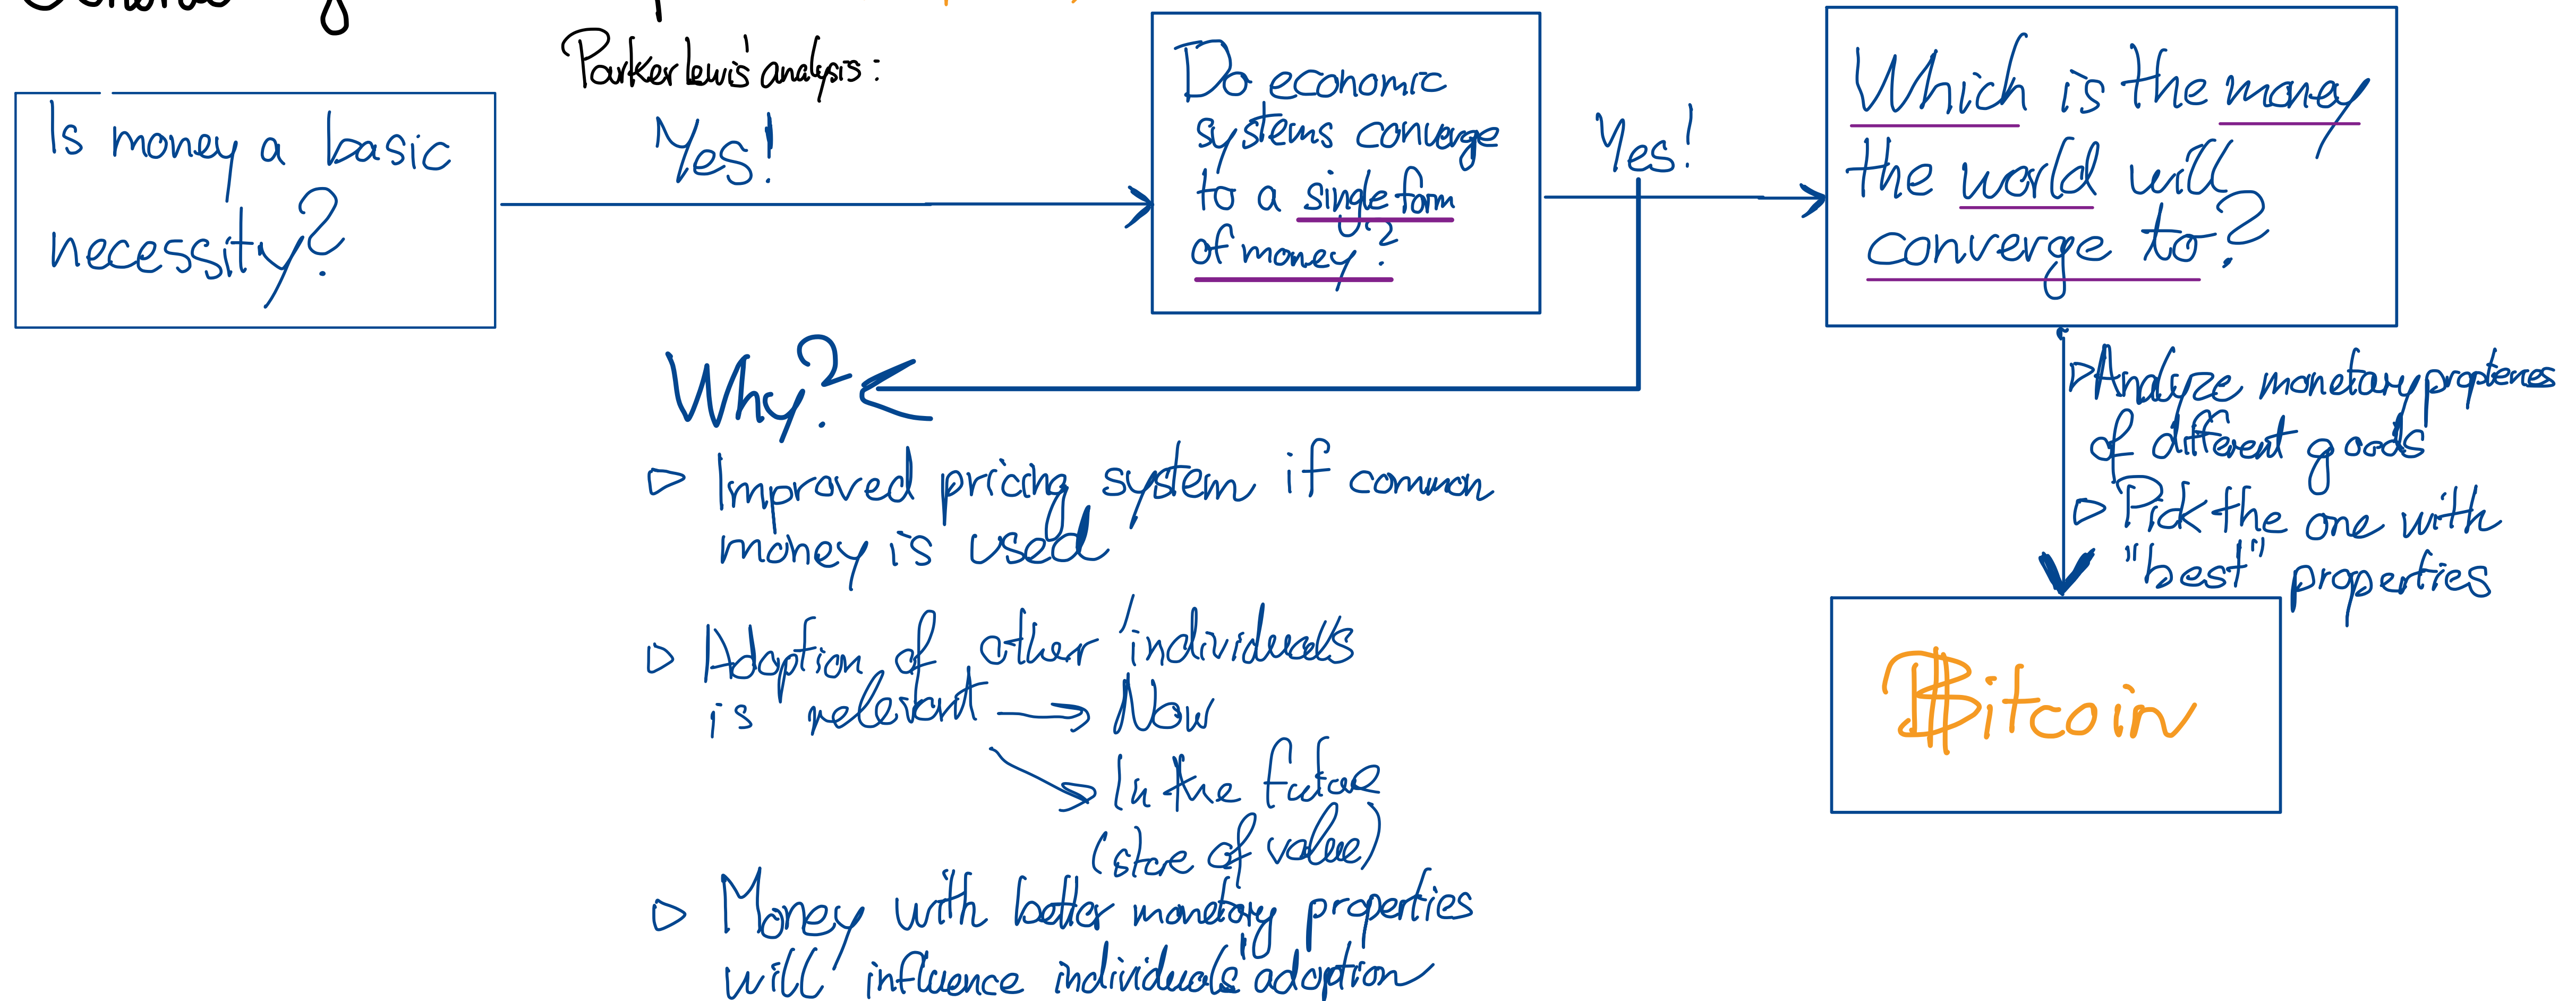 Parker Lewis' analysis:
Is money a basic
necessity?
Yes!
Do economic
systems converge
to a single form
of money?
Yes!
Which is the money
the world will
converge to?
Why?
▷ Improved pricing system if common
money is used
▷ Adoption of other individuals
is relevant → Now
In the future
(store of value)
▷ Money with better monetary properties
will influence individuals' adoption
▷ Analyze monetary propteries
of different goods
▷ Pick the one with
"best" properties
Bitcoin